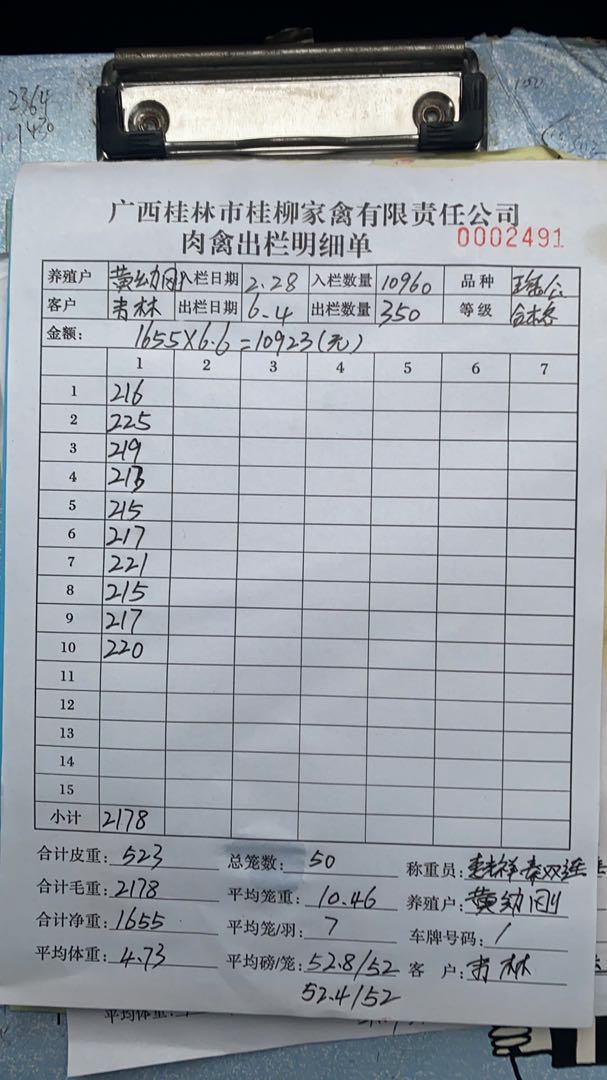 2364
1430
广西桂林市桂柳家禽有限责任公司
肉禽出栏明细单 0002491
养殖户 黄幼刚 入栏日期 2.28 入栏数量 10960 品种
客户 青林 出栏日期 6-4 出栏数量 350 等级 合格
金额: 1655×6.6=10923(元)
1 2 3 4 5 6 7
1 216
2 225
3 219
4 213
5 215
6 217
7 221
8 215
9 217
10 220
11
12
13
14
15
小计 2178
合计皮重: 523 总笼数: 50 称重员:
合计毛重: 2178 平均笼重: 10.46 养殖户: 黄幼刚
合计净重: 1655 平均笼/羽: 7 车牌号码: /
平均体重: 4.73 平均磅/笼: 52.8/52 客 户: 青林
52.4/52
平均体重: